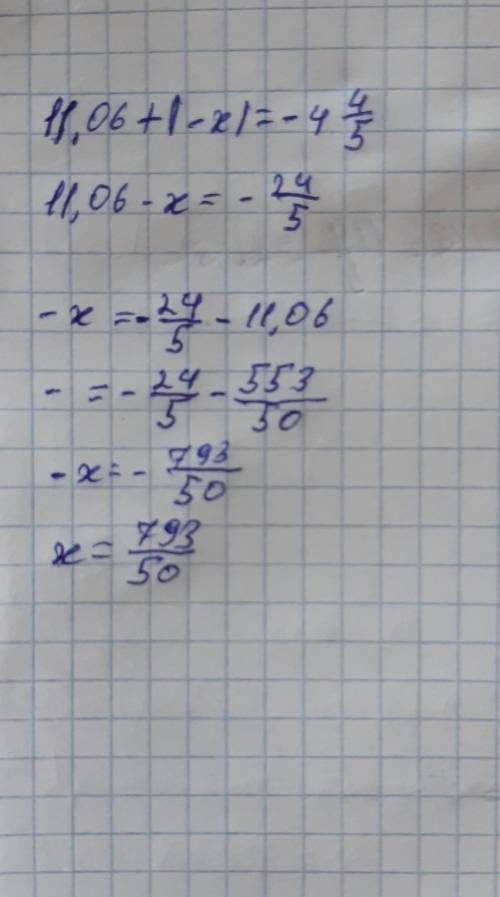 11,06 + |-x| = -4 4/5
11,06 - x = - 24/5
-x = - 24/5 - 11,06
- = - 24/5 - 553/50
-x = - 793/50
x = 793/50